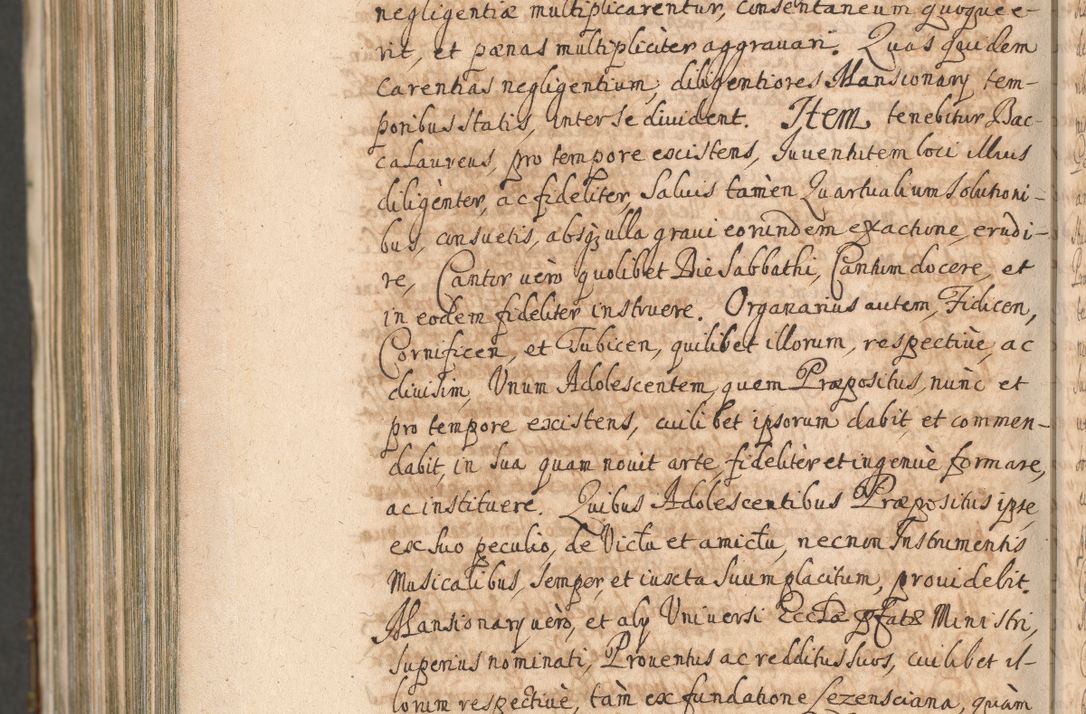 negligentiæ multiplicarentur, consentaneum quoque e-
rit, et pænas multipliciter aggrauari. Quas quidem
carentias negligentium, diligentiores Mansionarÿ tem-
poribus statis, inter se diuident. Item, tenebitur Bac-
calaureus, pro tempore existens, Iuuentutem loci illius
diligènter, ac fideliter, saluis tamèn Quartualium solutioni-
bus, consuetis, absq; ulla graui eorundem exactione, erudi-
re, Cantor uerò quolibet Die Sabbathi, Cantum docere, et
in eodem fideliter instruere. Organarius autem, Fidicen,
Cornificen, et Tubicen, quilibet illorum, respectiuè, ac
diuisim, Unum Adolescentem, quem Præpositus, nunc et
pro tempore existens, cuilibet ipsorum dabit, et commen-
dabit, in sua quam nouit arte, fidelitèr et ingenuè formare,
ac instituere. Quibus Adolescentibus Præpositus ipse,
ex suo peculio, de Victu et amictu, necnon Instrumentis
Musicalibus, semper, et iuxta suum placitum, prouidebit.
Mansionarÿ uerò, et alÿ Uniuersi Ecclæ pfatæ Ministri,
superius nominati, Prouentus ac redditus suos, cuilibet il-
lorum respectiuè, tàm ex fundatione Lezensciana, quàm